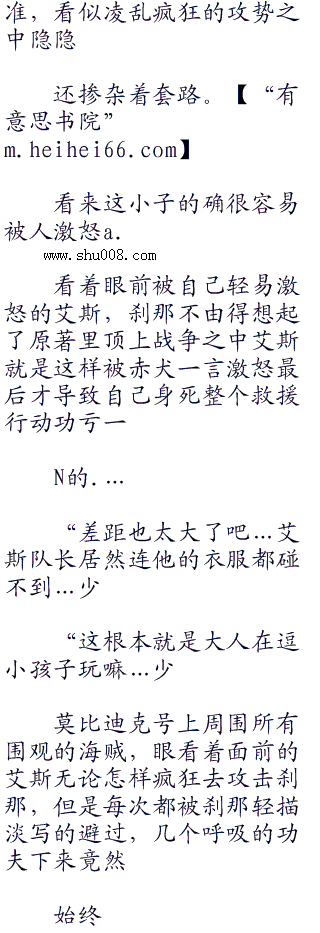 准，看似凌乱疯狂的攻势之
中隐隐
还掺杂着套路。【“有
意思书院”
m.heihei66.com】
看来这小子的确很容易
被人激怒a.
www.shu008.com
看着眼前被自己轻易激
怒的艾斯，刹那不由得想起
了原著里顶上战争之中艾斯
就是这样被赤犬一言激怒最
后才导致自己身死整个救援
行动功亏一
N的.…
“差距也太大了吧…艾
斯队长居然连他的衣服都碰
不到…少
“这根本就是大人在逗
小孩子玩嘛…少
莫比迪克号上周围所有
围观的海贼，眼看着面前的
艾斯无论怎样疯狂去攻击刹
那，但是每次都被刹那轻描
淡写的避过，几个呼吸的功
夫下来竟然
始终